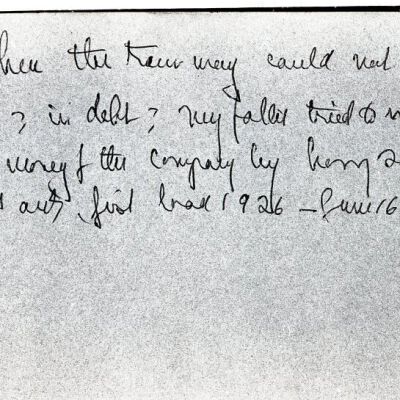 hen the Tramway could not
? in debt ? my father tried to
money of the Company by
first 1926 – June 16